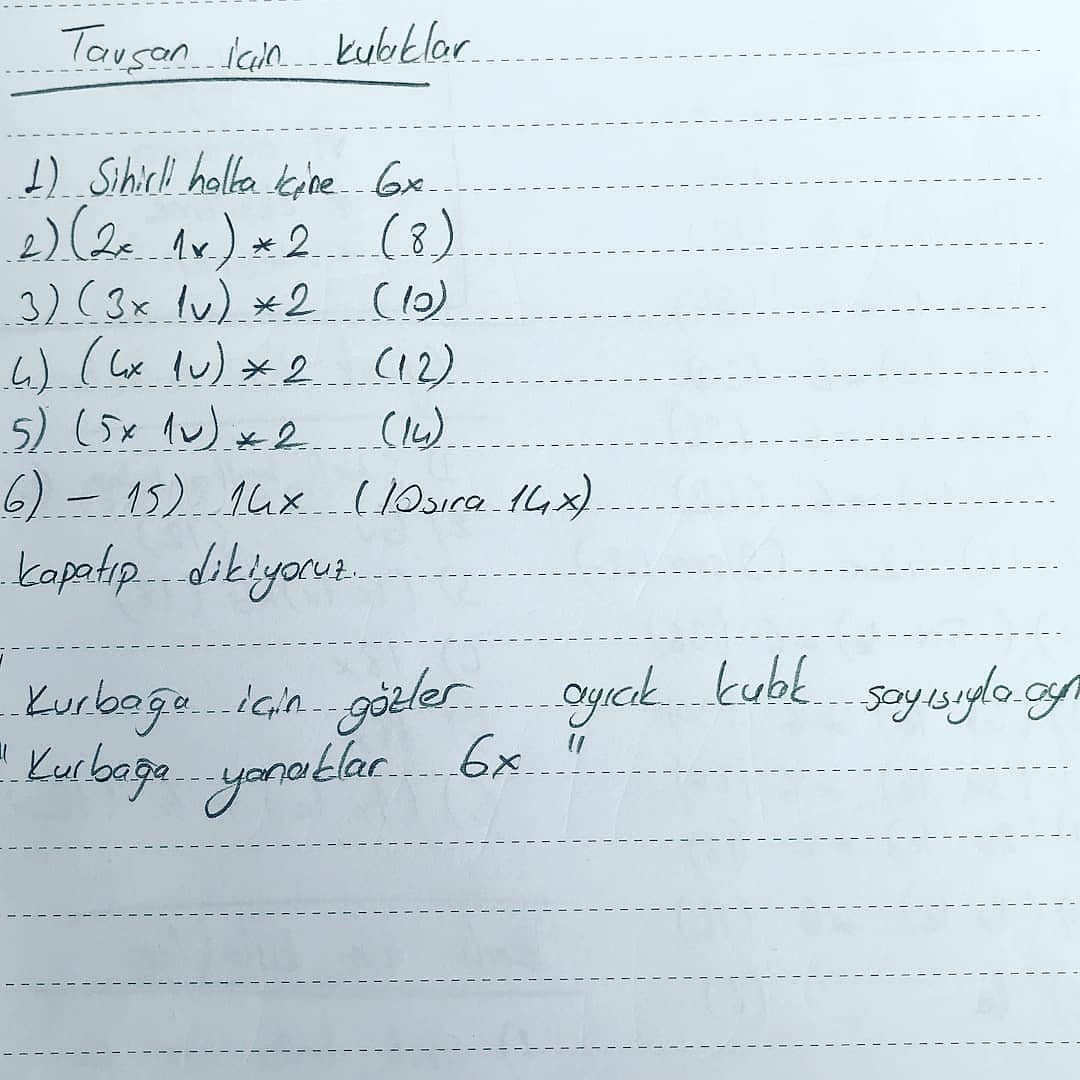 Tavşan için kulaklar
1) Sihirli halka içine 6x
2) (2x 1v) * 2 (8)
3) (3x 1v) * 2 (10)
4) (4x 1v) * 2 (12)
5) (5x 1v) * 2 (14)
6) - 15) 14x (10 sıra 14x)
kapatıp dikiyoruz.
Kurbağa için gözler ayıcık kulak sayısıyla ayn
" Kurbağa yanaklar 6x "